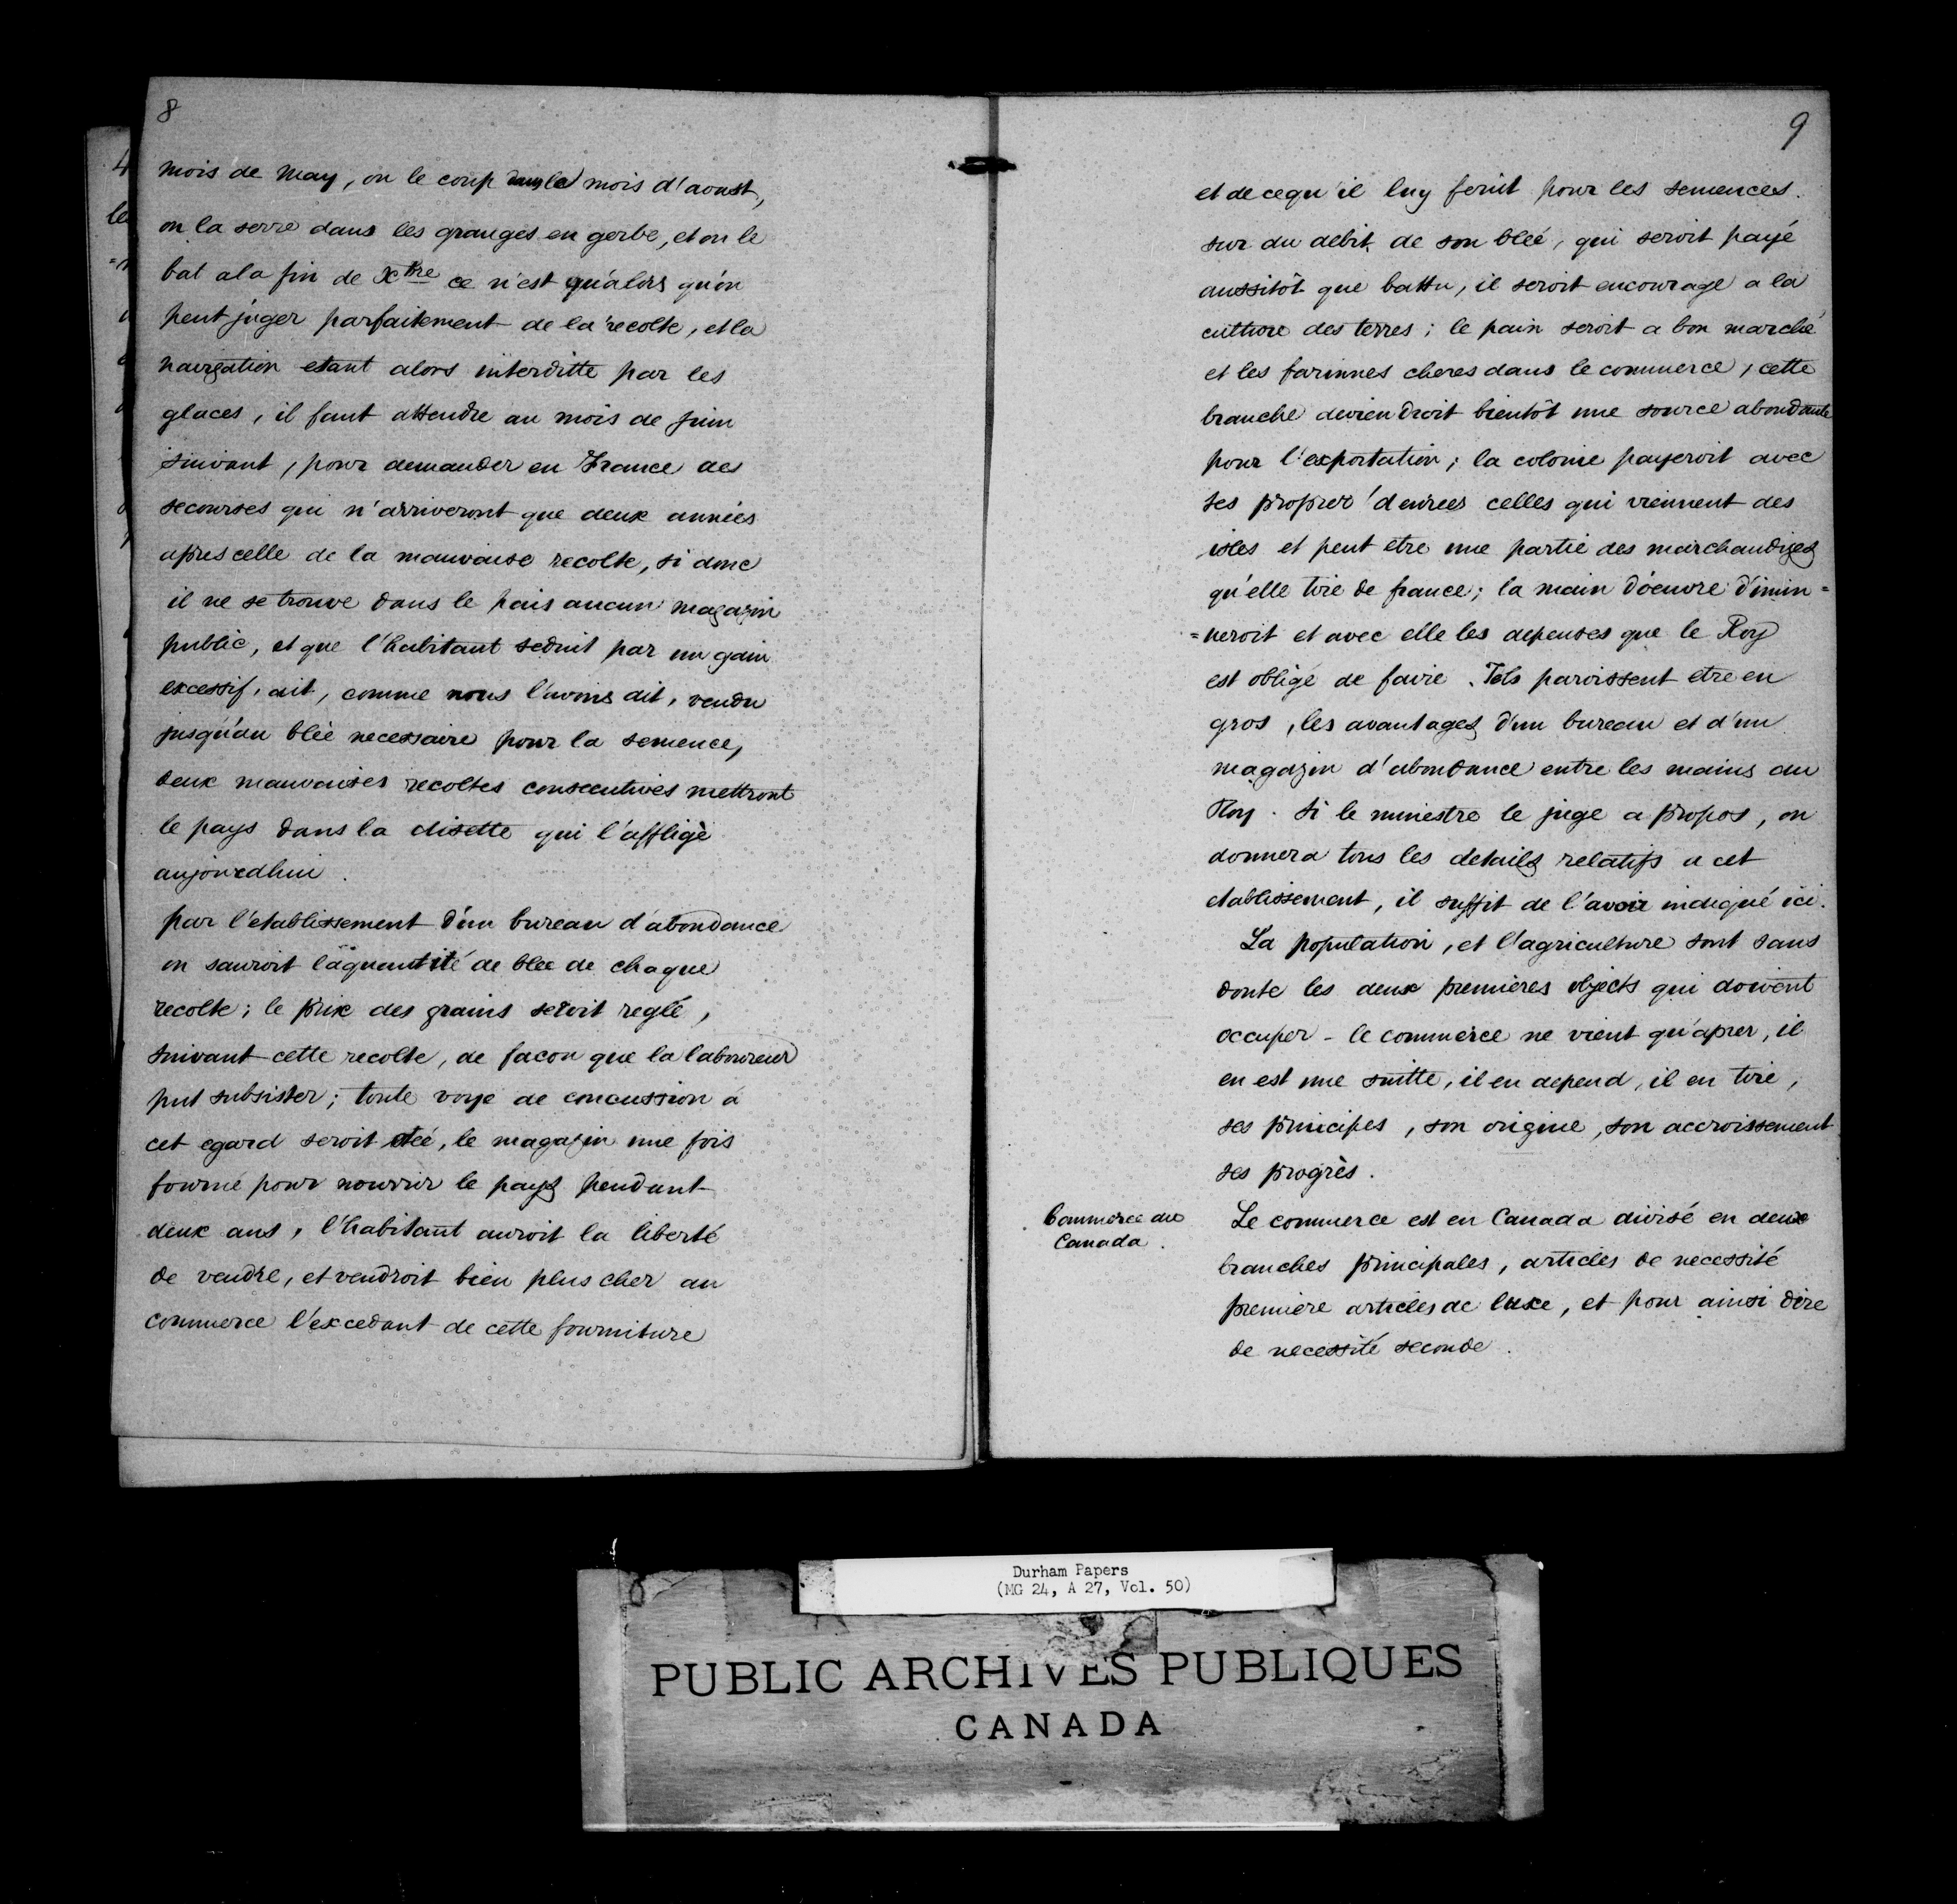 8
mois de May, on le coup dans le mois d'aoust,
on la serre dans les granges en gerbe, et on le
bat a la fin de Xbre ce n'est qu'alors qu'on
peut juger parfaitement de la recolte, et la
navigation etant alors interditte par les
glaces, il faut attendre au mois de juin
suivant, pour demander en France des
secourses qui n'arriveront que deux années
apres celle de la mauvaise recolte, si donc
il ne se trouve dans le pais aucun magazin
public, et que l'habitant seduit par un gain
excessif, ait, comme nous l'avons dit, vendu
jusqu'au bleé necessaire pour la semence,
deux mauvaises recoltes consecutives mettront
le pays dans la disette qui l'afflige
aujouredhui.
par l'etablissement d'un bureau d'abondance
on sauroit la quantité de blee de chaque
recolte; le prix des grains seroit reglé,
suivant cette recolte, de facon que la laboureur
put subsister; toute voye de concussion á
cet egard seroit oteé, le magazin une fois
fourné pour nourrir le pays pendant
deux ans, l'habitant auroit la liberté
de vendre, et vendroit bien plus cher au
commerce l'excedant de cette fourniture
9
et de cequ'il luy feroit pour les semences.
sur du debit de son bleé, qui seroit payé
aussitôt que battu, il seroit encourage a la
culture des terres; le pain seroit a bon marché
et les farinnes cheres dans le commerce, cette
branche deviendroit bientôt une source abondante
pour l'exportation; la colonie payeroit avec
ses propres denrees celles qui viennent des
isles et peut etre une partie des marchandizes
qu'elle tire de france; la main d'oeuvre dimin=
=ueroit et avec elle les depenses que le Roy
est obligé de faire. Tels paroissent etre en
gros, les avantages d'un bureau et d'un
magazin d'abondance entre les mains du
Roy. Si le miniestre le juge a propos, on
donnera tous les details relatifs a cet
etablissement, il suffit de l'avoir indiqué ici.
La population, et l'agriculture sont sans
doute les deux premieres objects qui doivent
occuper - le commerce ne vient qu'apres, il
en est une suitte, il en depend, il en tire,
ses principes, son origine, son accroissement
ses progrès.
Commerce du
Canada.
Le commerce est en Canada divisé en deux
branches principales, articles de necessité
premiere articles de luxe, et pour ainsi dire
de necessité seconde.
Durham Papers
(MG 24, A 27, Vol. 50)
PUBLIC ARCHIVES PUBLIQUES
CANADA